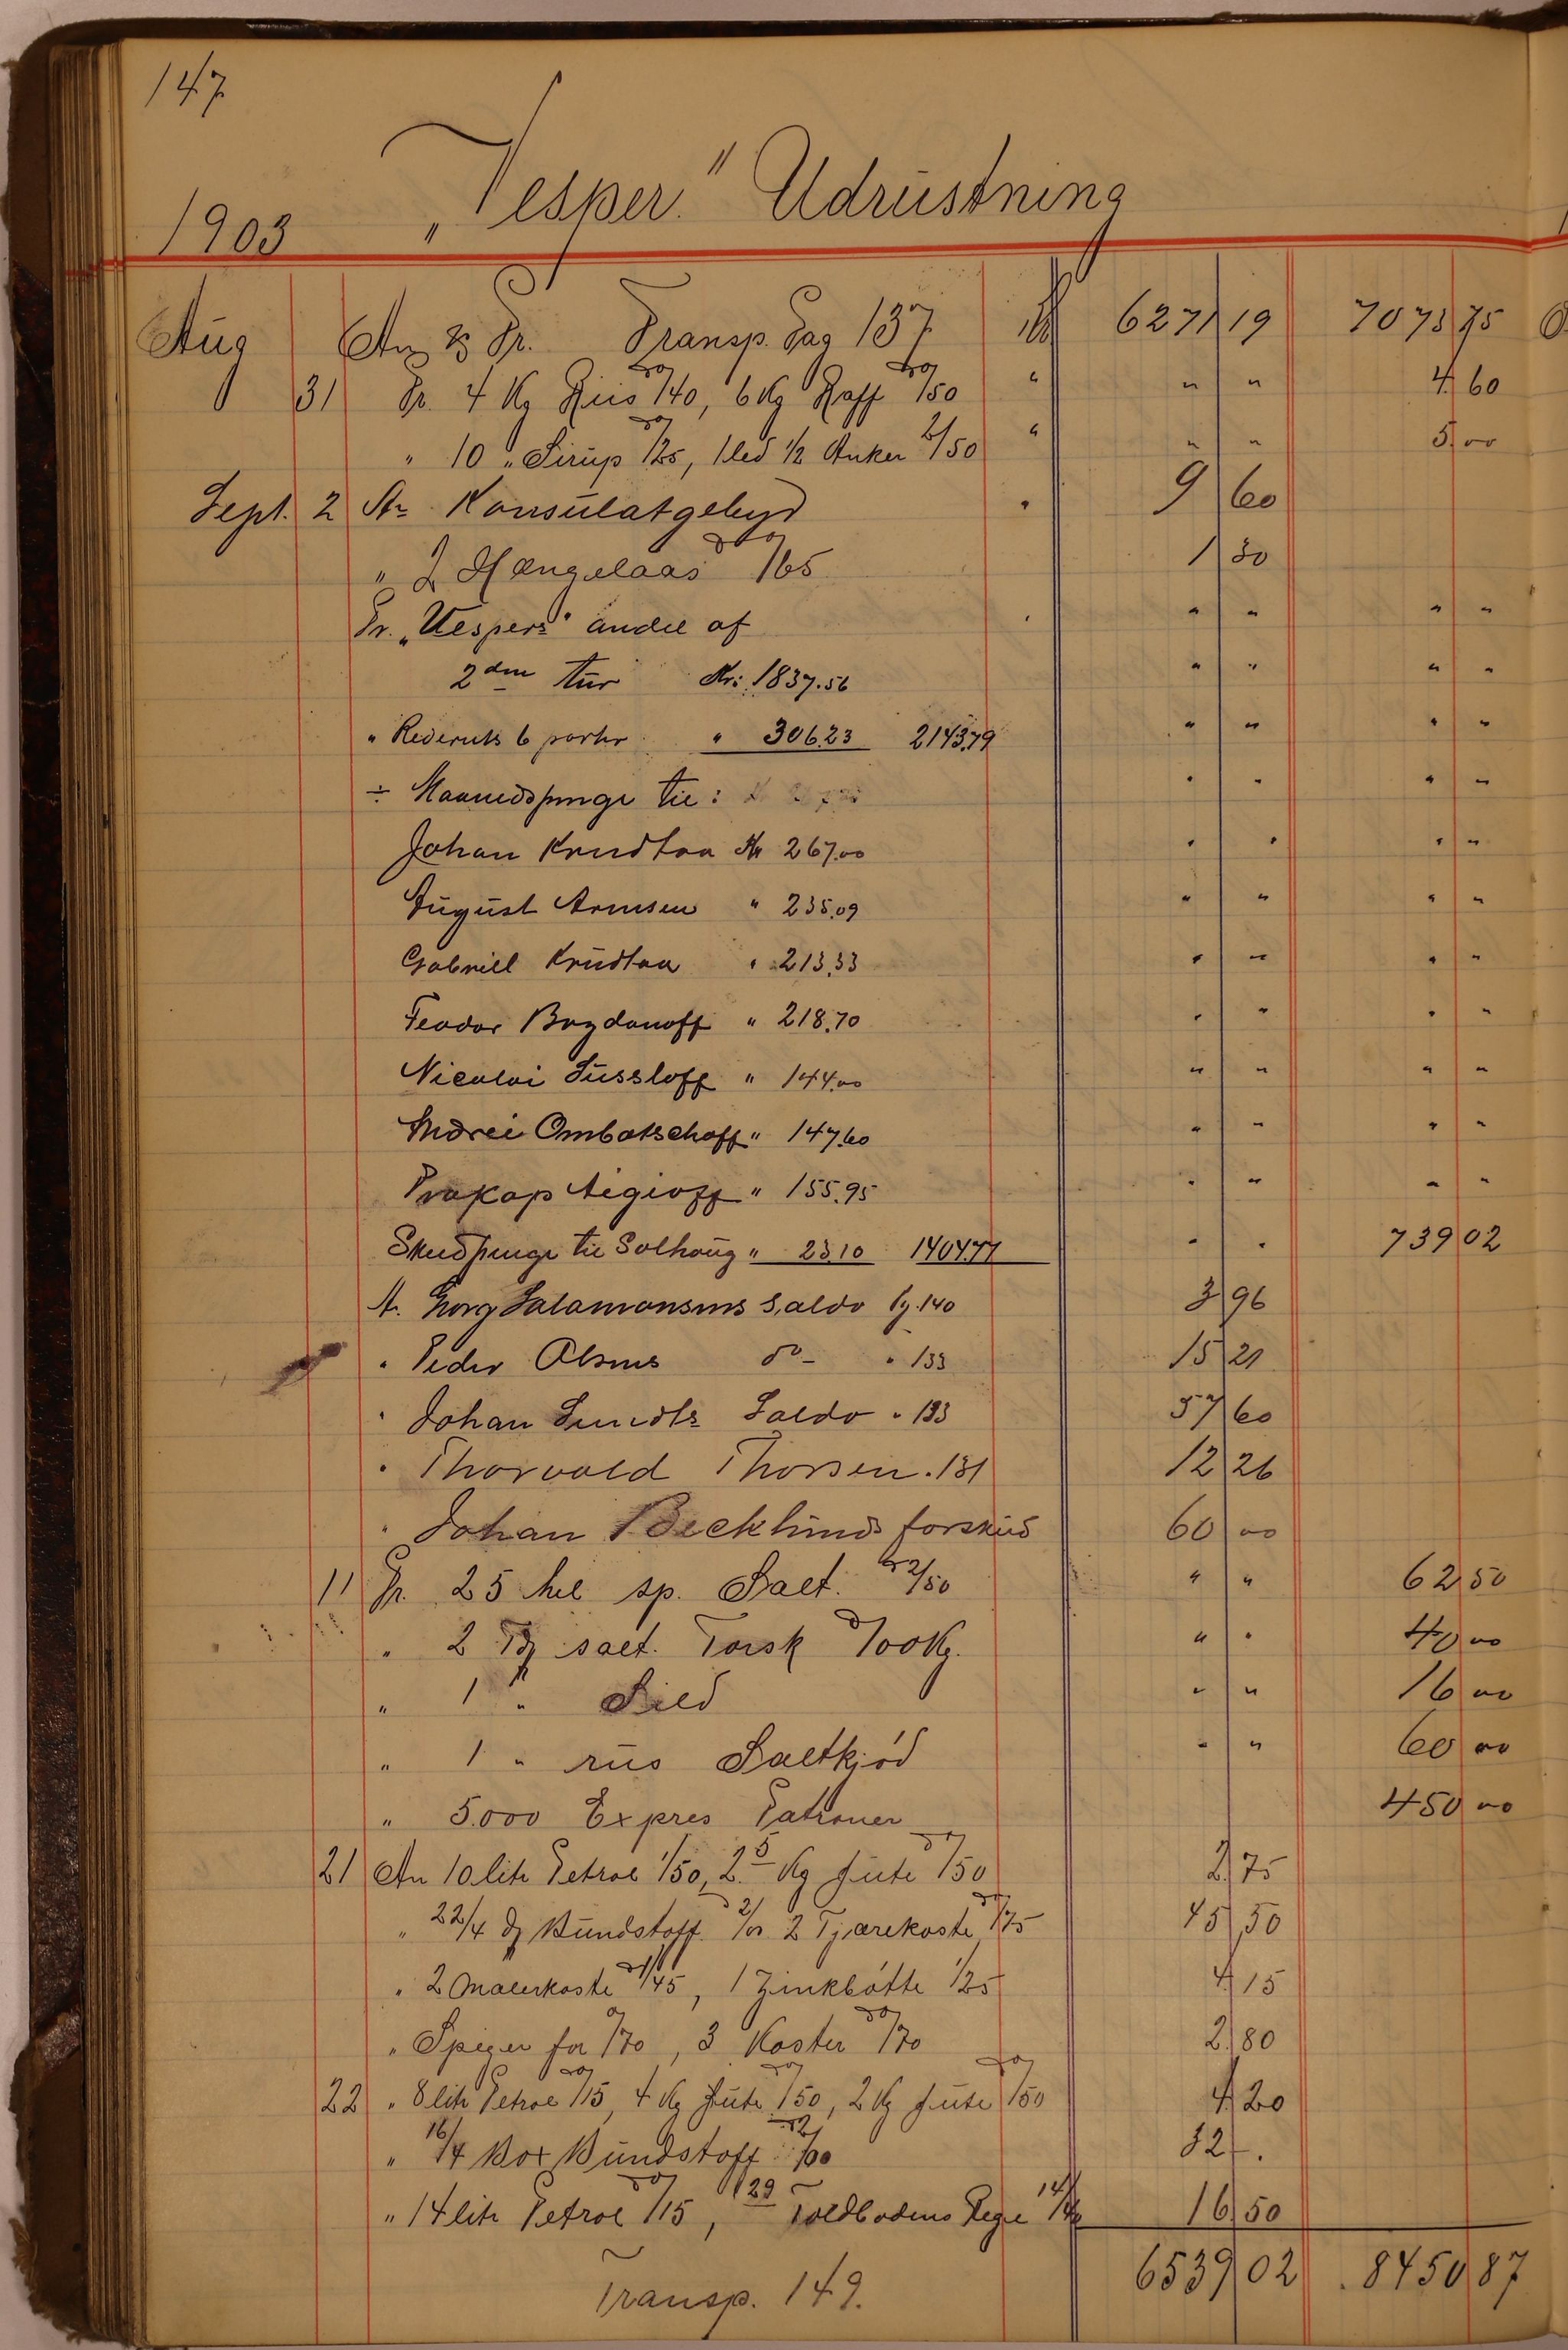 147
1903 „Vesper." Udrustning
Aug An & Pr. Transp. Pag 137 Kr 6271 19 7073 75
31 Pr. 4 Kg Riis /40, 6 Kg Raff /50 " " " 4 60
" 10 " Sirup /25, 1 led 1/2 Anker 2/50 " " " 5 00
Sept. 2 An Konsulatgebyr " 9 60
" 2 Hængelaas /65 1 30
Pr. „Vespers" andel af " " " "
2den tur Kr: 1837.56 " " " "
" Rederiets 6 parter " 306.23 2143.79 " " " "
÷ Maanedspenge til: " " " "
Johan Kvudtaa Kr 267.00 " " " "
August Arensen " 235.09 " " " "
Gabriell Krudtaa " 213.33 " " " "
Feodor Bogdanoff " 218.70 " " " "
Nicolai Sussloff " 144.00 " " " "
Andrei Ombatschoff " 147.60 " " " "
Prokop " 155.95 " " " "
Skudpenge til Solhaug " 23.10 1404.77 " " 739 02
A. Georg Salamonsens Saldo Pg. 140 3 96
" Peder Olsens do - " 133 15 21
" Johan Lunds Saldo " 133 57 60
" Thorvald Thorsen . 131 12 26
" Johan Becklunds forskud 60 00
11 Pr. 25 hel sp. Salt. 2/50 " " 62 50
" 2 Tdr salt. Torsk /00 Kg. " " 40 00
" 1 " Sild " " 16 00
" 1 " rus Saltkjød " " 60 00
" 5.000 Expres Patroner 450 00
21 An 10 litr Petrol 1/50, 2.5 Kg Jute /50 2 75
" 22/4 Bundstoff 2/00 2 Tjærekoste /75 45 50
" 2 Malerkoste 1/45, 1 Zinkbøtte 1/25 4 15
" Spiger for /70, 3 Koster /70 2 80
22 " 8 litr Petrol /15, 4 Kg Jute /50, 2 Kg Jute /50 4 20
" 16/4 Box Bundstoff 2/00 32 -.
" 14 litr Petrol /15, 29 Toldbodens Regn 14/40 16 50
6539 02 8450 87
Transp. 149.